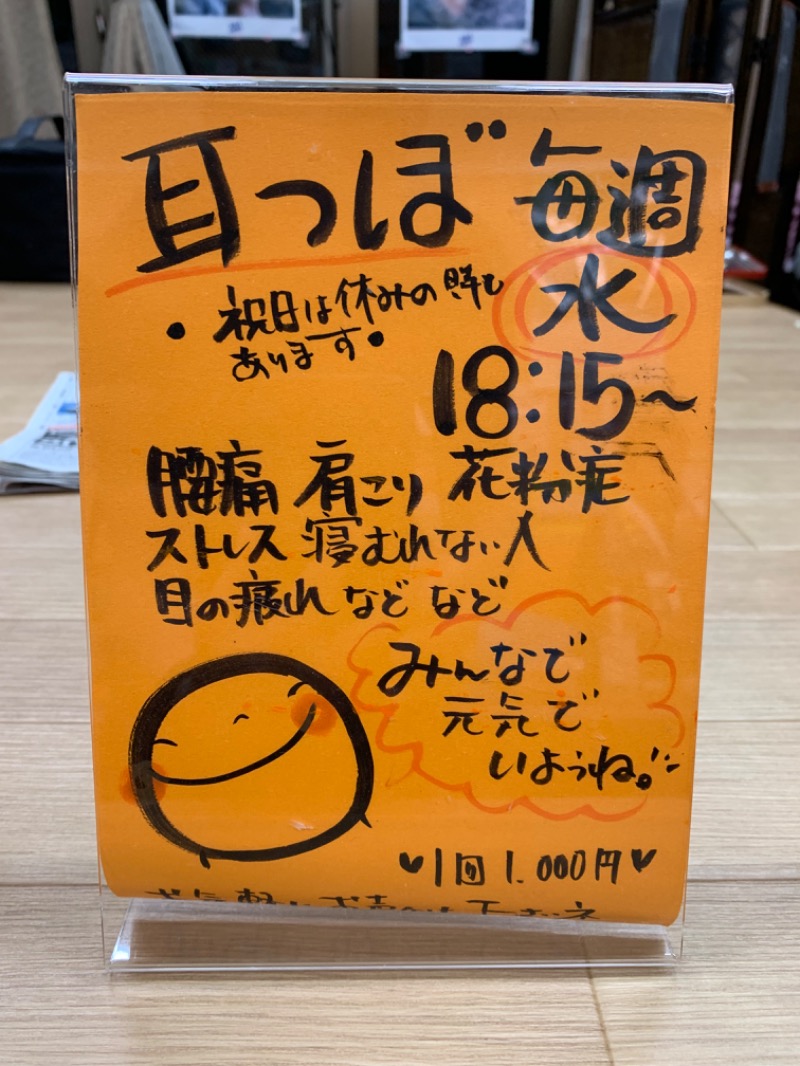 耳つぼ 毎週
水
・祝日は休みの時も
あります・
18:15〜
腰痛 肩こり 花粉症
ストレス 寝むれない人
目の疲れ などなど
みんなで
元気で
いようね。!!
♥1回1.000円♥